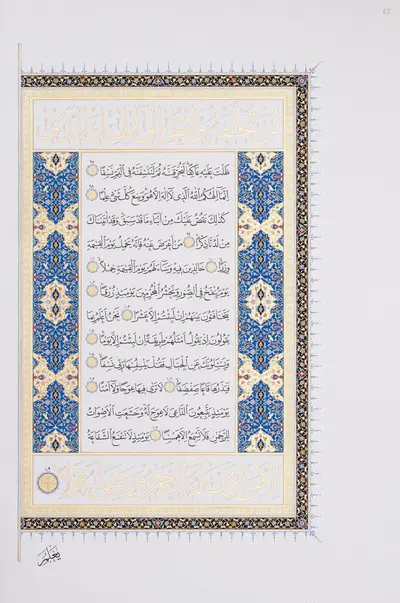 لَنْ تُخْلَفَهُ وَانْظُرْ اِلٰى اِلٰهِكَ الَّذِي
ظَلْتَ عَلَيْهِ عَاكِفًا لَنُحَرِّقَنَّهُ ثُمَّ لَنَنْسِفَنَّهُ فِي الْيَمِّ نَسْفًا
اِنَّمَا اِلٰهُكُمُ اللّٰهُ الَّذِي لَا اِلٰهَ اِلَّا هُوَ وَسِعَ كُلَّ شَيْءٍ عِلْمًا
كَذٰلِكَ نَقُصُّ عَلَيْكَ مِنْ اَنْبَاءِ مَا قَدْ سَبَقَ وَقَدْ اٰتَيْنَاكَ
مِنْ لَدُنَّا ذِكْرًا مَنْ اَعْرَضَ عَنْهُ فَاِنَّهُ يَحْمِلُ يَوْمَ الْقِيٰمَةِ
وِزْرًا خَالِدِينَ فِيهِ وَسَاءَ لَهُمْ يَوْمَ الْقِيٰمَةِ حِمْلًا
يَوْمَ يُنْفَخُ فِي الصُّورِ وَنَحْشُرُ الْمُجْرِمِينَ يَوْمَئِذٍ زُرْقًا
يَتَخَافَتُونَ بَيْنَهُمْ اِنْ لَبِثْتُمْ اِلَّا عَشْرًا نَحْنُ اَعْلَمُ بِمَا
يَقُولُونَ اِذْ يَقُولُ اَمْثَلُهُمْ طَرِيقَةً اِنْ لَبِثْتُمْ اِلَّا يَوْمًا
وَيَسْـَٔلُونَكَ عَنِ الْجِبَالِ فَقُلْ يَنْسِفُهَا رَبِّي نَسْفًا
فَيَذَرُهَا قَاعًا صَفْصَفًا لَا تَرٰى فِيهَا عِوَجًا وَلَا اَمْتًا
يَوْمَئِذٍ يَتَّبِعُونَ الدَّاعِيَ لَا عِوَجَ لَهُ وَخَشَعَتِ الْاَصْوَاتُ
لِلرَّحْمٰنِ فَلَا تَسْمَعُ اِلَّا هَمْسًا يَوْمَئِذٍ لَا تَنْفَعُ الشَّفَاعَةُ
اِلَّا مَنْ اَذِنَ لَهُ الرَّحْمٰنُ وَرَضِيَ لَهُ قَوْلًا
يَعْلَمُ